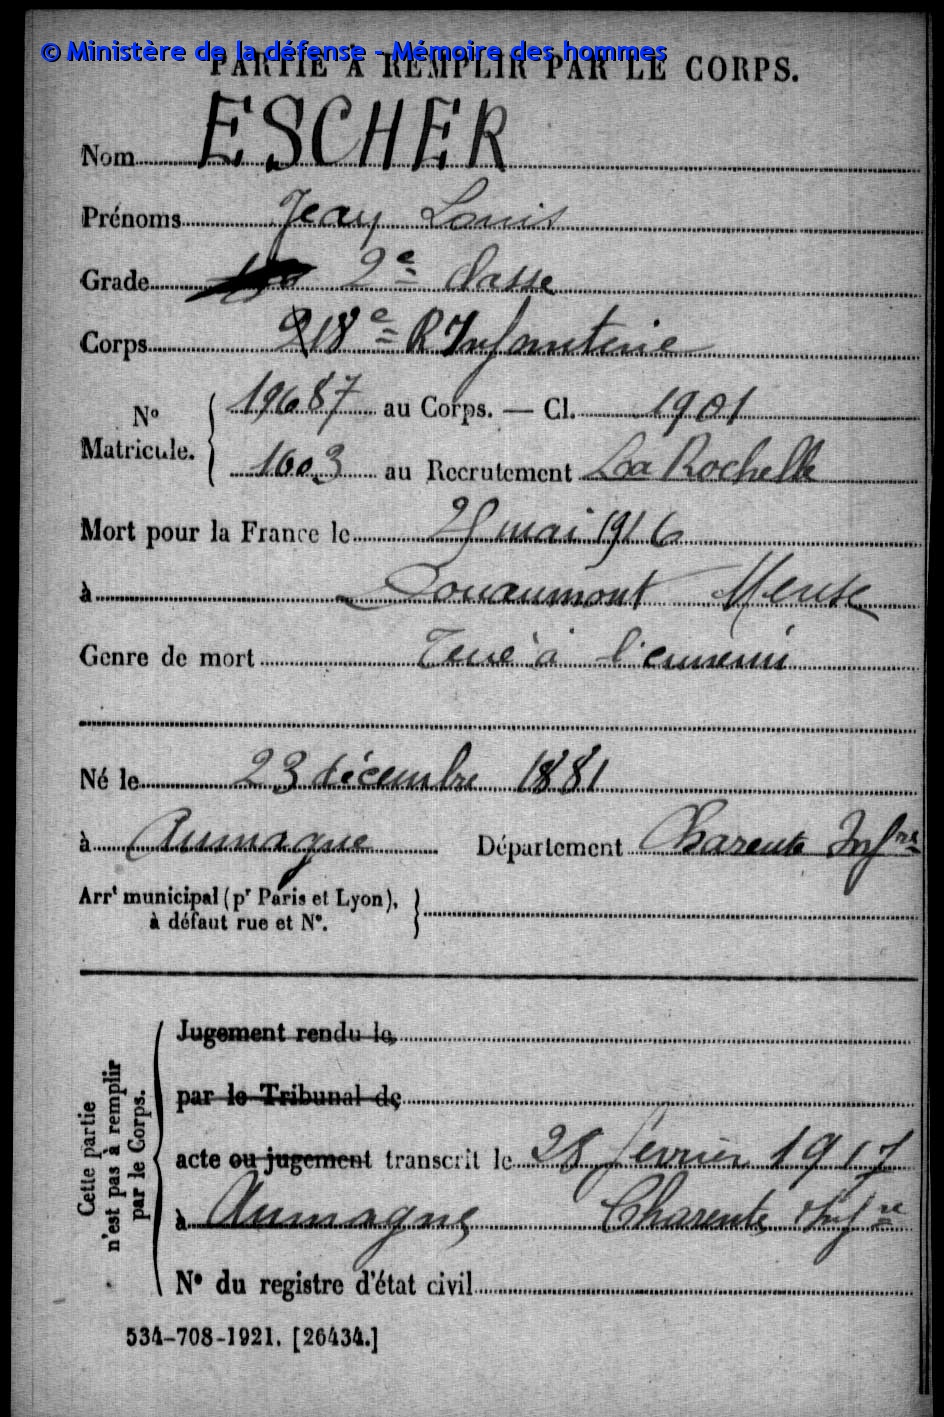 © Ministère de la défense - Mémoire des hommes
PARTIE À REMPLIR PAR LE CORPS.
Nom ESCHER
Prénoms Jean Louis
Grade 2e Classe
Corps 218e R Infanterie
No Matricule. 19687 au Corps. — Cl. 1901
1603 au Recrutement La Rochelle
Mort pour la France le 25 mai 1916
à Douaumont Meuse
Genre de mort Tué à l'ennemi
Né le 23 décembre 1881
à Aumagne Département Charente Infre
Arrt municipal (pr Paris et Lyon),
à défaut rue et No.
Cette partie
n'est pas à remplir
par le Corps.
Jugement rendu le
par le Tribunal de
acte ou jugement transcrit le 28 février 1917
à Aumagne Charente Infre
No du registre d'état civil
534-708-1921. [26434.]